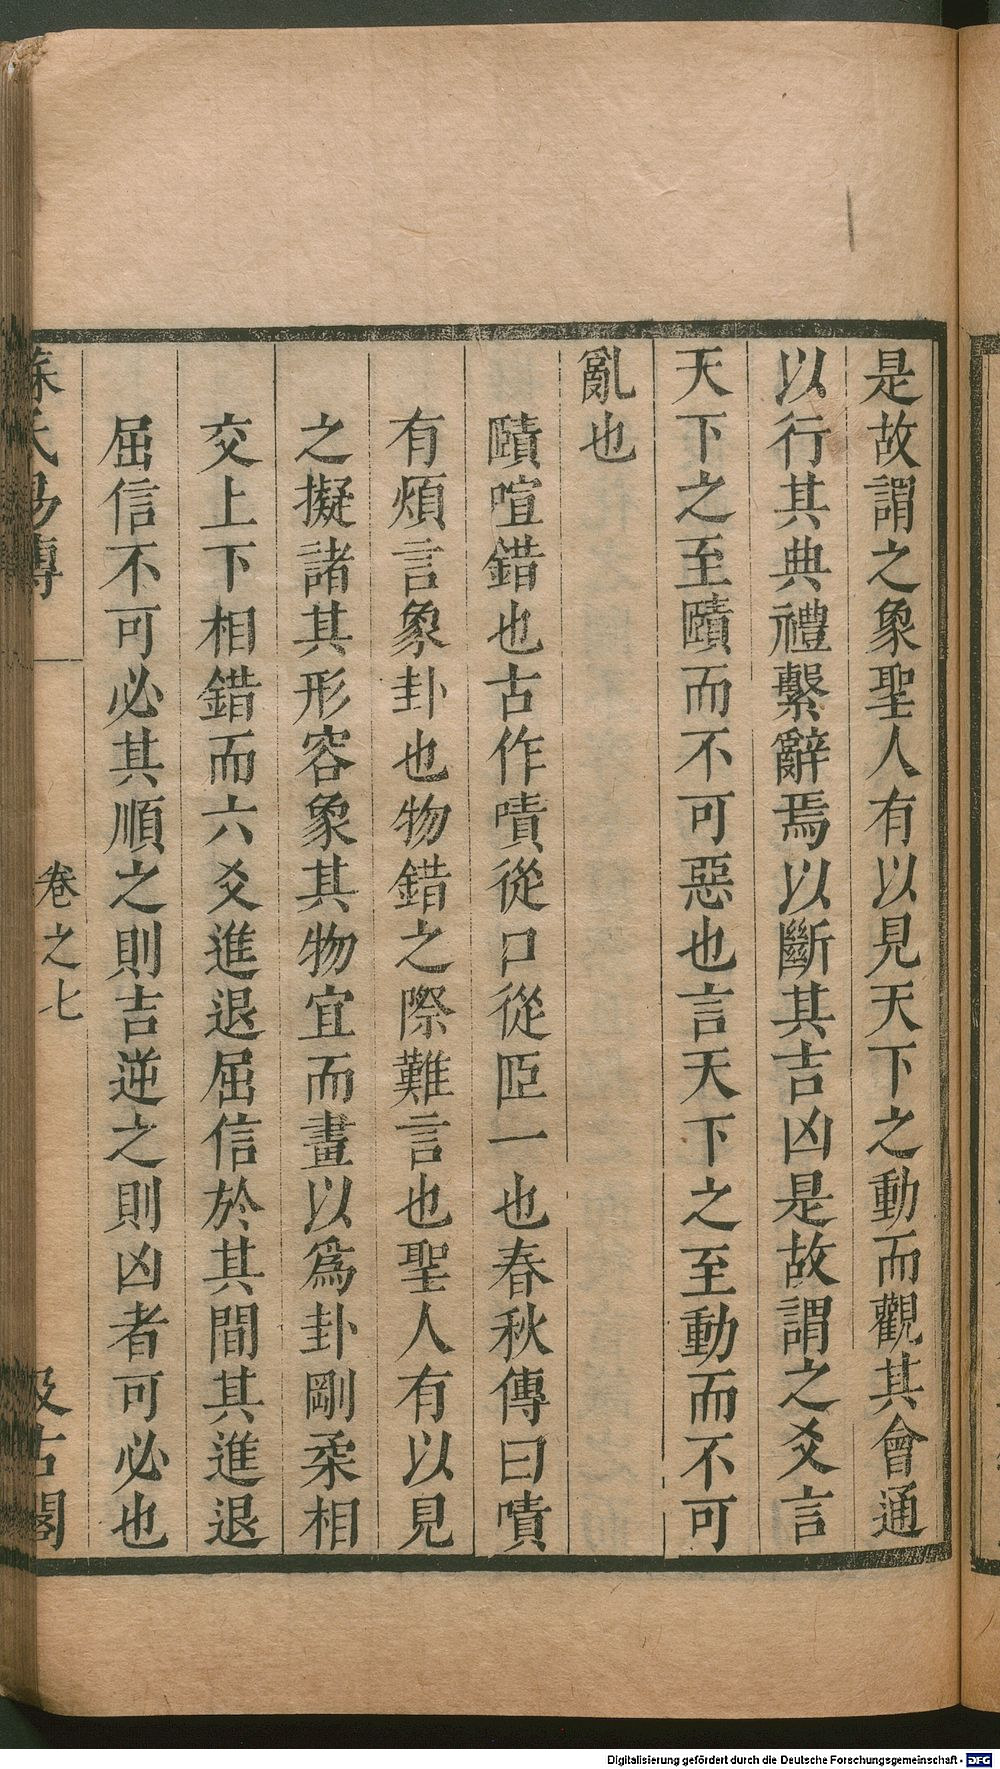 是故謂之象聖人有以見天下之動而觀其會通
以行其典禮繫辭焉以斷其吉凶是故謂之爻言
天下之至賾而不可惡也言天下之至動而不可
亂也
賾喧錯也古作嘖從口從𦣞一也春秋傳曰嘖
有煩言象卦也物錯之際難言也聖人有以見
之擬諸其形容象其物宜而畫以爲卦剛柔相
交上下相錯而六爻進退屈信於其間其進退
屈信不可必其順之則吉逆之則凶者可必也
蘇氏易傳
卷之七
汲古閣
Digitalisierung gefördert durch die Deutsche Forschungsgemeinschaft - DFG